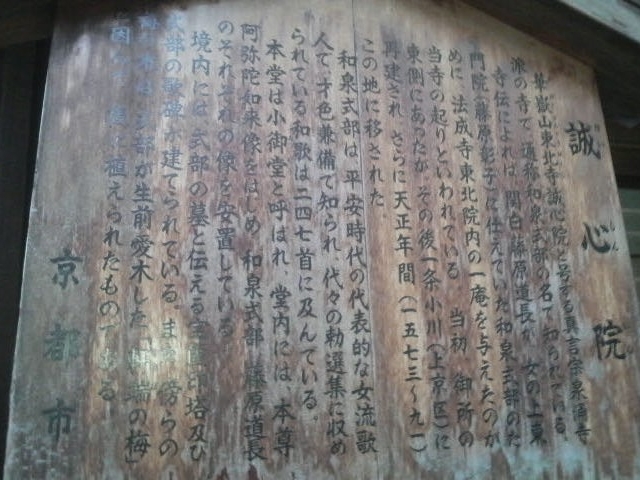 誠心院
華嶽山東北寺誠心院と号する真言宗泉涌寺
派の寺で、通称和泉式部の名で知られている。
寺伝によれば、関白藤原道長が、女の上東
門院(藤原彰子)に仕えていた和泉式部のた
めに、法成寺東北院内の一庵を与えたのが
当寺の起りといわれている。当初、御所の
東側にあったが、その後一条小川(上京区)に
再建され、さらに天正年間(一五七三〜九一)
この地に移された。
和泉式部は、平安時代の代表的な女流歌
人で、才色兼備で知られ、代々の勅選集に収め
られている和歌は二四七首に及んでいる。
本堂は小御堂と呼ばれ、堂内には、本尊
阿弥陀如来像をはじめ、和泉式部、藤原道長
のそれぞれの像を安置している。
境内には、式部の墓と伝える宝篋印塔及び
式部の歌碑が建てられている。また、傍らの
梅の木は、式部が生前愛木した「軒端の梅」
に因んで、植えられたものである。
京都市